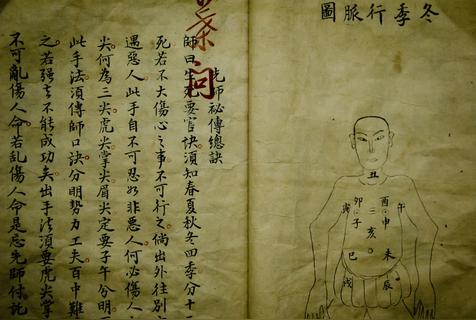 冬季行脈圖
葉問
先師祕傳總訣
師曰生死要官訣須知春夏秋冬四季分十二
死若不大傷心之事不可行之倘出外往別
遇惡人此手自不可忍如非惡人何必傷人
尖何為三尖虎尖掌尖眉尖定要子午分明
此手法須傳師口訣分明勢力工夫百中難
之若強言不能成功矣出手法須要虎尖掌
不可亂傷人命若亂傷人命是忘先師付託
丑
卯 酉
寅 子 三 申 午
亥
巳 未
戌 辰